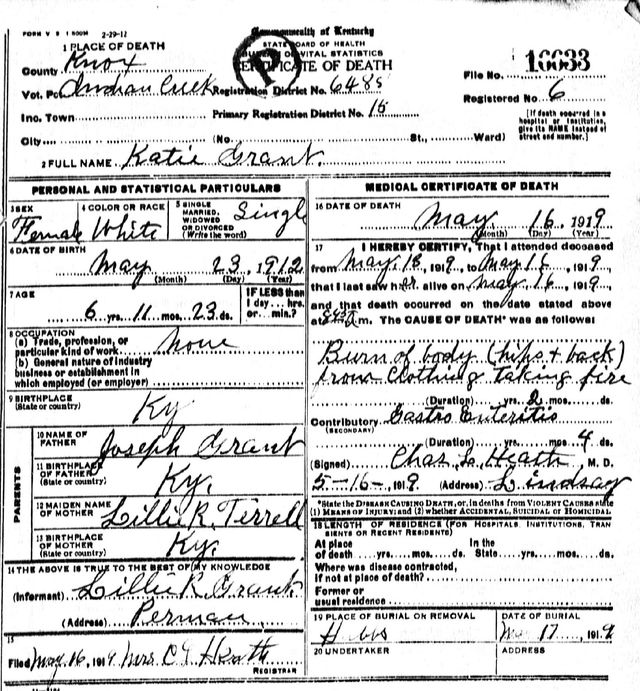 FORM V S 1 500M 2-29-12
Commonwealth of Kentucky
STATE BOARD OF HEALTH
BUREAU OF VITAL STATISTICS
CERTIFICATE OF DEATH
P
1 PLACE OF DEATH
County Knox
Vot. Pct Indian Creek Registration District No. 6485
Inc. Town Primary Registration District No. 15
File No. 16633
Registered No. 6
[If death occurred in a hospital or institution, give its NAME instead of street and number.]
City (No. St., Ward)
2 FULL NAME Katie Grant
PERSONAL AND STATISTICAL PARTICULARS
3 SEX Female
4 COLOR OR RACE White
5 SINGLE MARRIED, WIDOWED OR DIVORCED (Write the word) Single
6 DATE OF BIRTH
May 23, 1912
(Month) (Day) (Year)
7 AGE
6 yrs. 11 mos. 23 ds.
IF LESS than 1 day... hrs. or... min.?
8 OCCUPATION
(a) Trade, profession, or particular kind of work none
(b) General nature of industry
business or establishment in
which employed (or employer)
9 BIRTHPLACE
(State or country) Ky
PARENTS
10 NAME OF FATHER Joseph Grant
11 BIRTHPLACE OF FATHER (State or country) Ky.
12 MAIDEN NAME OF MOTHER Lillie R. Terrell
13 BIRTHPLACE OF MOTHER (State or country) Ky.
14 THE ABOVE IS TRUE TO THE BEST OF MY KNOWLEDGE
(Informant) Lillie R Grant
(Address) Perman
15
Filed May 16, 1919 Mrs. C Heath
REGISTRAR
MEDICAL CERTIFICATE OF DEATH
16 DATE OF DEATH
May 16, 1919
(Month) (Day) (Year)
17 I HEREBY CERTIFY, That I attended deceased
from May 13, 1919, to May 16, 1919
that I last saw her alive on May 16, 1919
and that death occurred on the date stated above
at m. The CAUSE OF DEATH* was as follows:
Burn of body (hips + back)
from Clothing taking fire
(Duration) yrs. 2 mos. ds.
Contributory Gastro Enteritis
(SECONDARY)
(Duration) yrs. mos. 4 ds.
(Signed) Chas. L. Heath, M. D.
5-16-, 1919 (Address) Lindsay
*State the DISEASE CAUSING DEATH, or, in deaths from VIOLENT CAUSES state
(1) MEANS OF INJURY; and (2) whether ACCIDENTAL, SUICIDAL or HOMICIDAL
18 LENGTH OF RESIDENCE (FOR HOSPITALS, INSTITUTIONS, TRANSIENTS OR RECENT RESIDENTS)
At place of death yrs. mos. ds. In the State yrs. mos. ds.
Where was disease contracted,
if not at place of death?
Former or
usual residence
19 PLACE OF BURIAL OR REMOVAL
DATE OF BURIAL
17, 1919
20 UNDERTAKER
ADDRESS